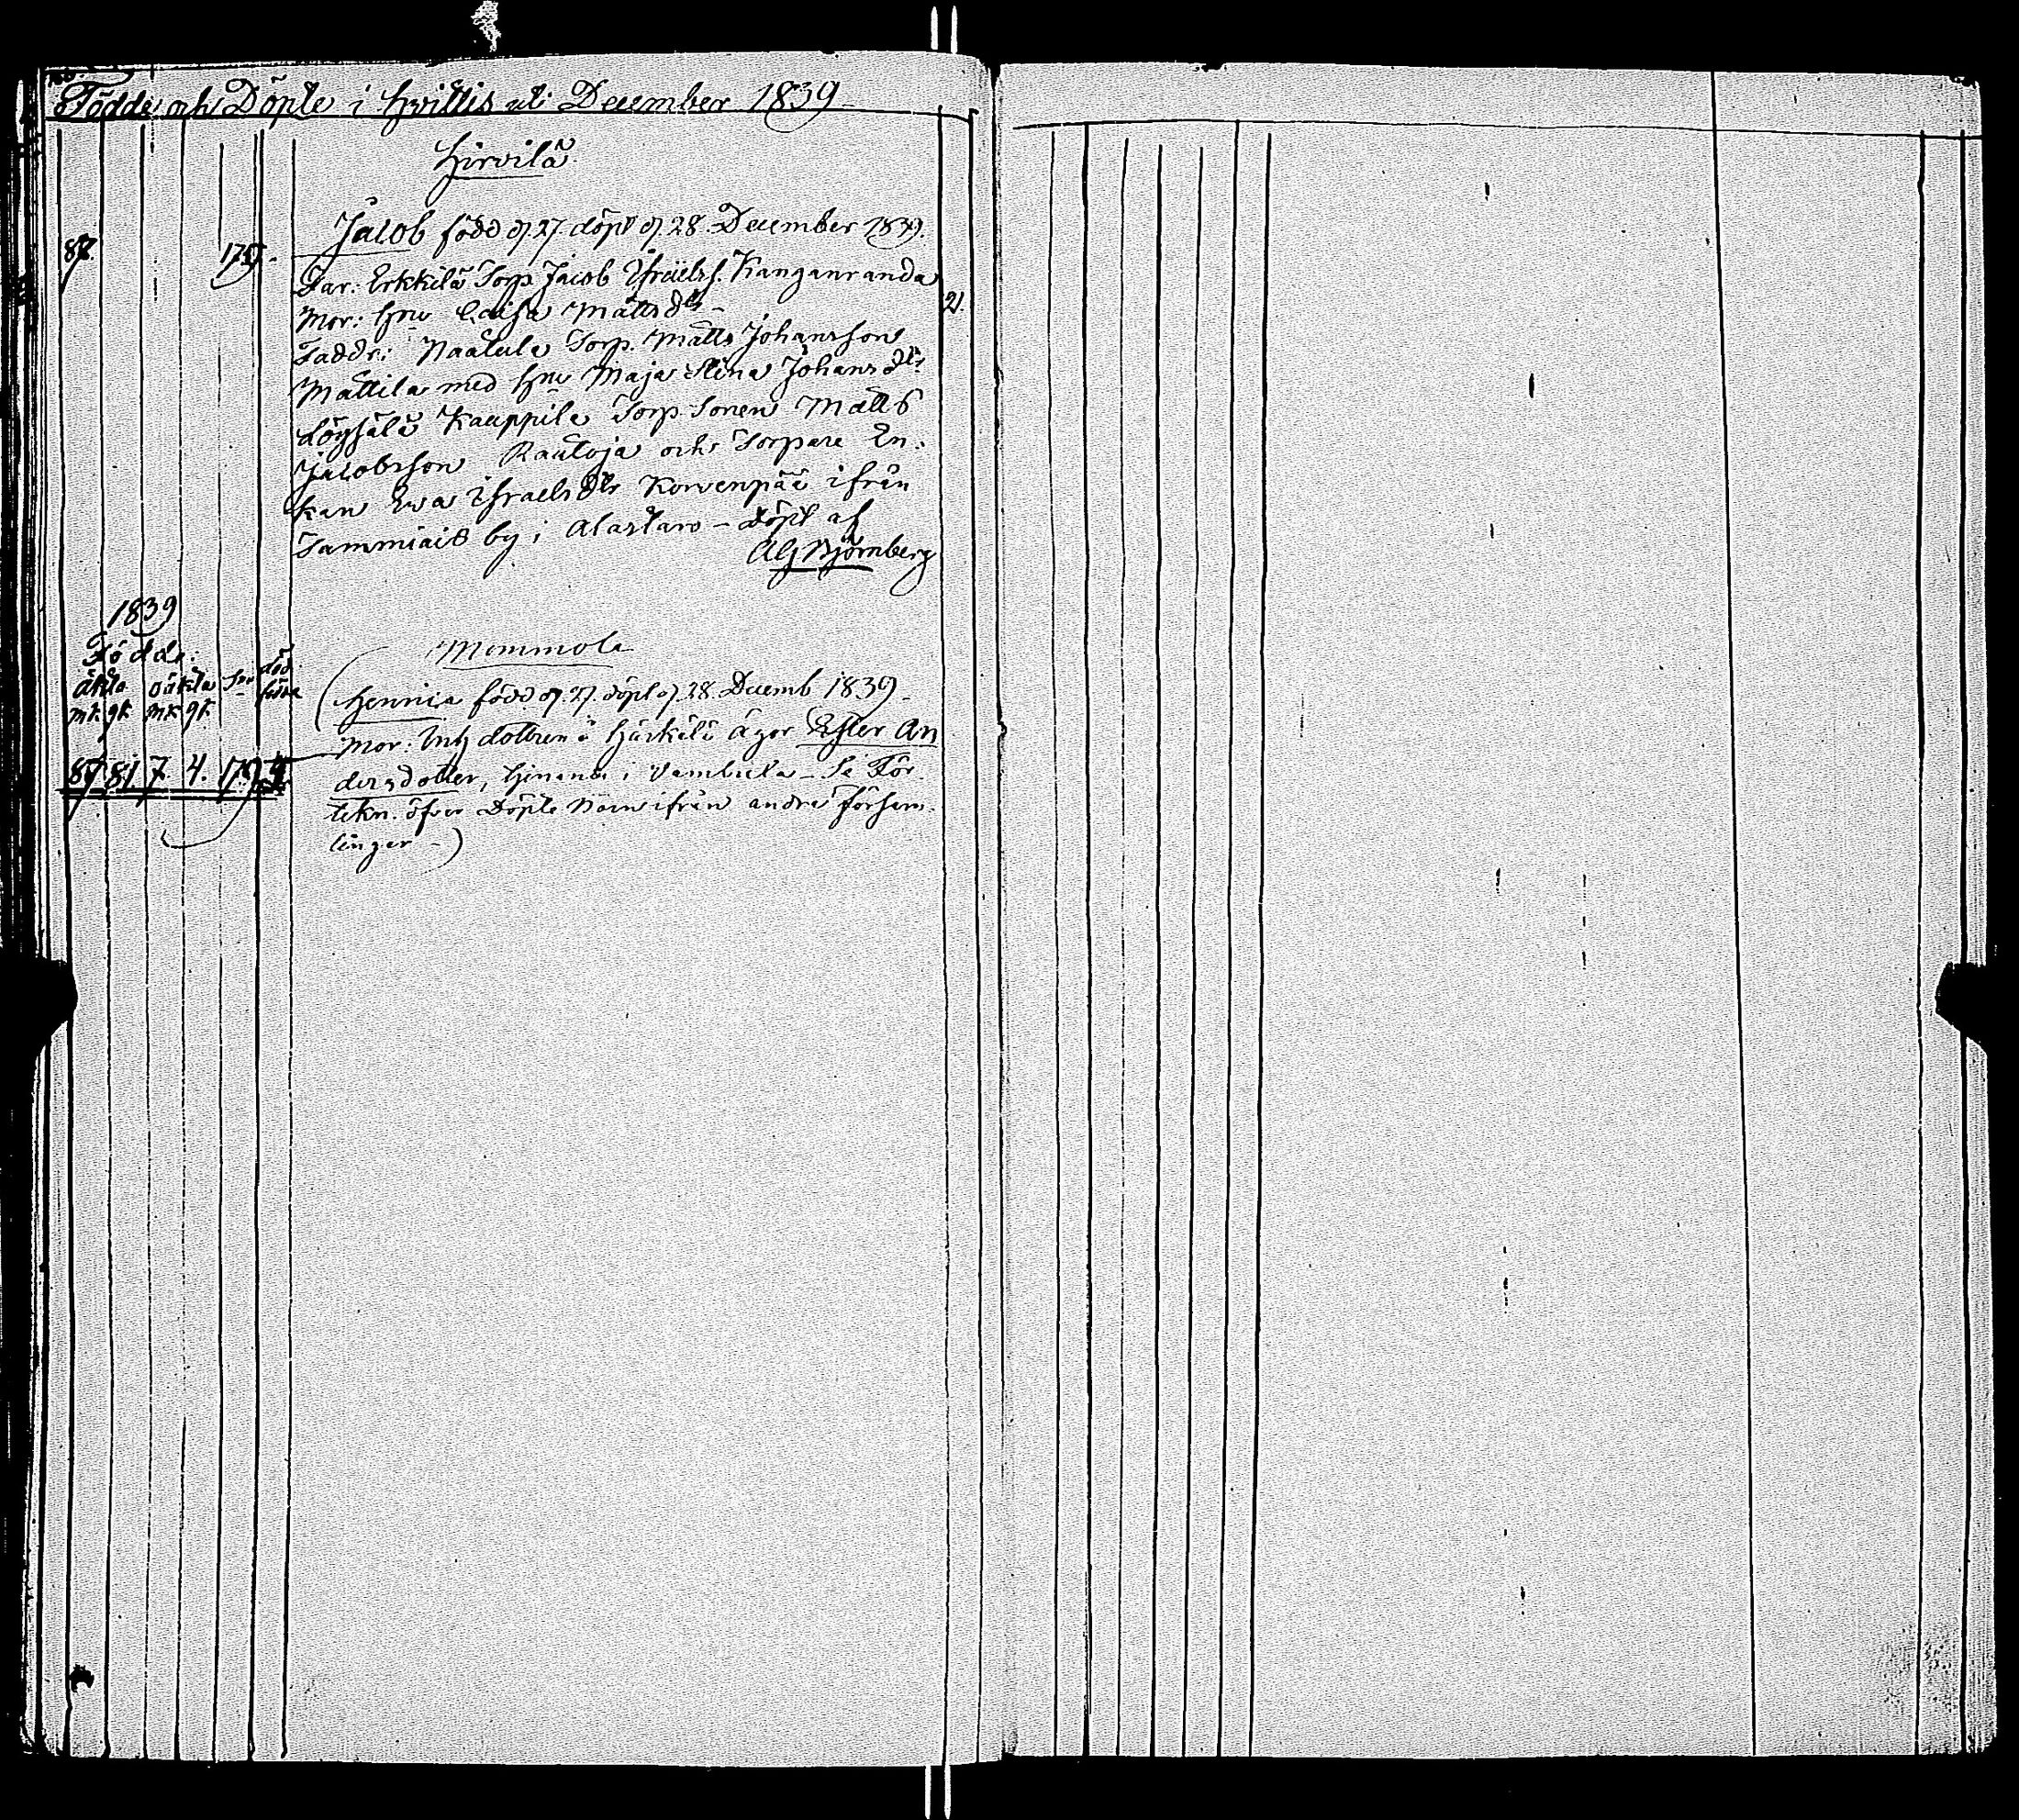 Födde och Döpte i Hvittis uti December 1839
Hirvilä
87. 179.
Jacob född d 27. döpt d 28. December 1839.
Far: Erkkilä Torp. Jacob Israels s. Kanganranda
Mor: Hu Caisa Mattsdtr 21.
Faddr: Naatula Torp. Matts Johansson
Mattila med Hu Maja Stina Johansdtr
Kauppila Torp. Sonen Matts
Jacobsson Rautoja och Torpare En-
kan Eva Israelsdtr Korvenpää ifrån
Sammiais by i Alastaro – döpt af
AG Björnberg
1839
Födde:
äkta oäkta Sm död födda
mk qk mk qk
87 81 7. 4. 179 4
Mommola
(Henrica född d 27. döpt d 28. Decemb 1839
Mor: Inh. dottren å Härkälä ägor Ester An
dersdotter, hemma i Vambula – Se För-
tekn. öfver Döpte Barn ifrån andra försam-
lingar –)